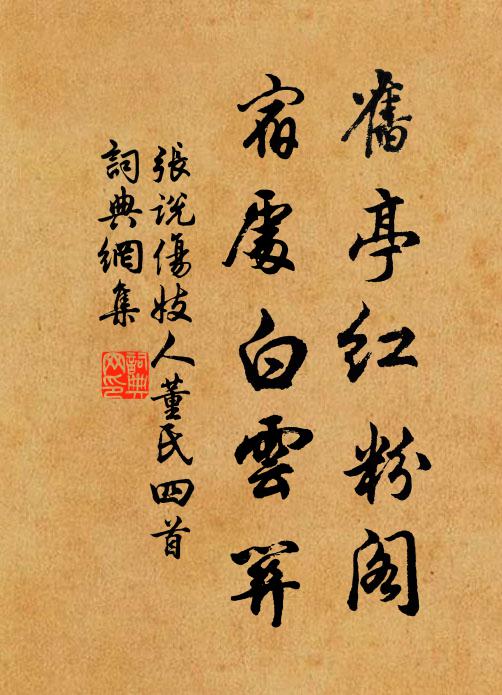 舊亭紅粉閣
宿處白雲關
張說傷妓人董氏四首
詞典網集
詞典网印